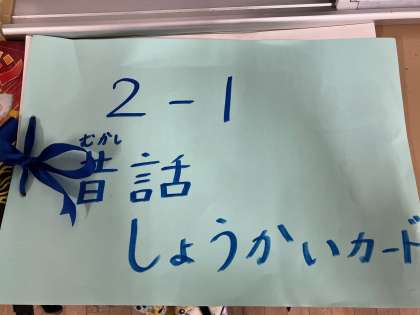 2-1
むかし
昔話
しょうかいカード